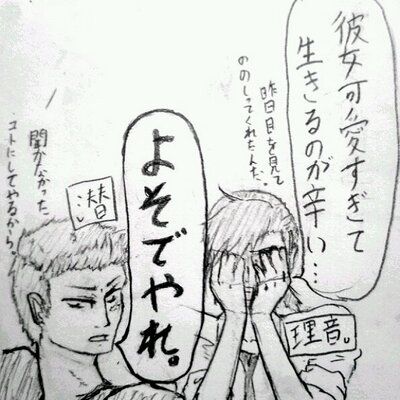 彼女可愛すぎて
生きるのが辛い…
昨日目を見て
ののしってくれたんだ。
よそでやれ。
聞かなかった
コトにしてやるから。
潜
理音。